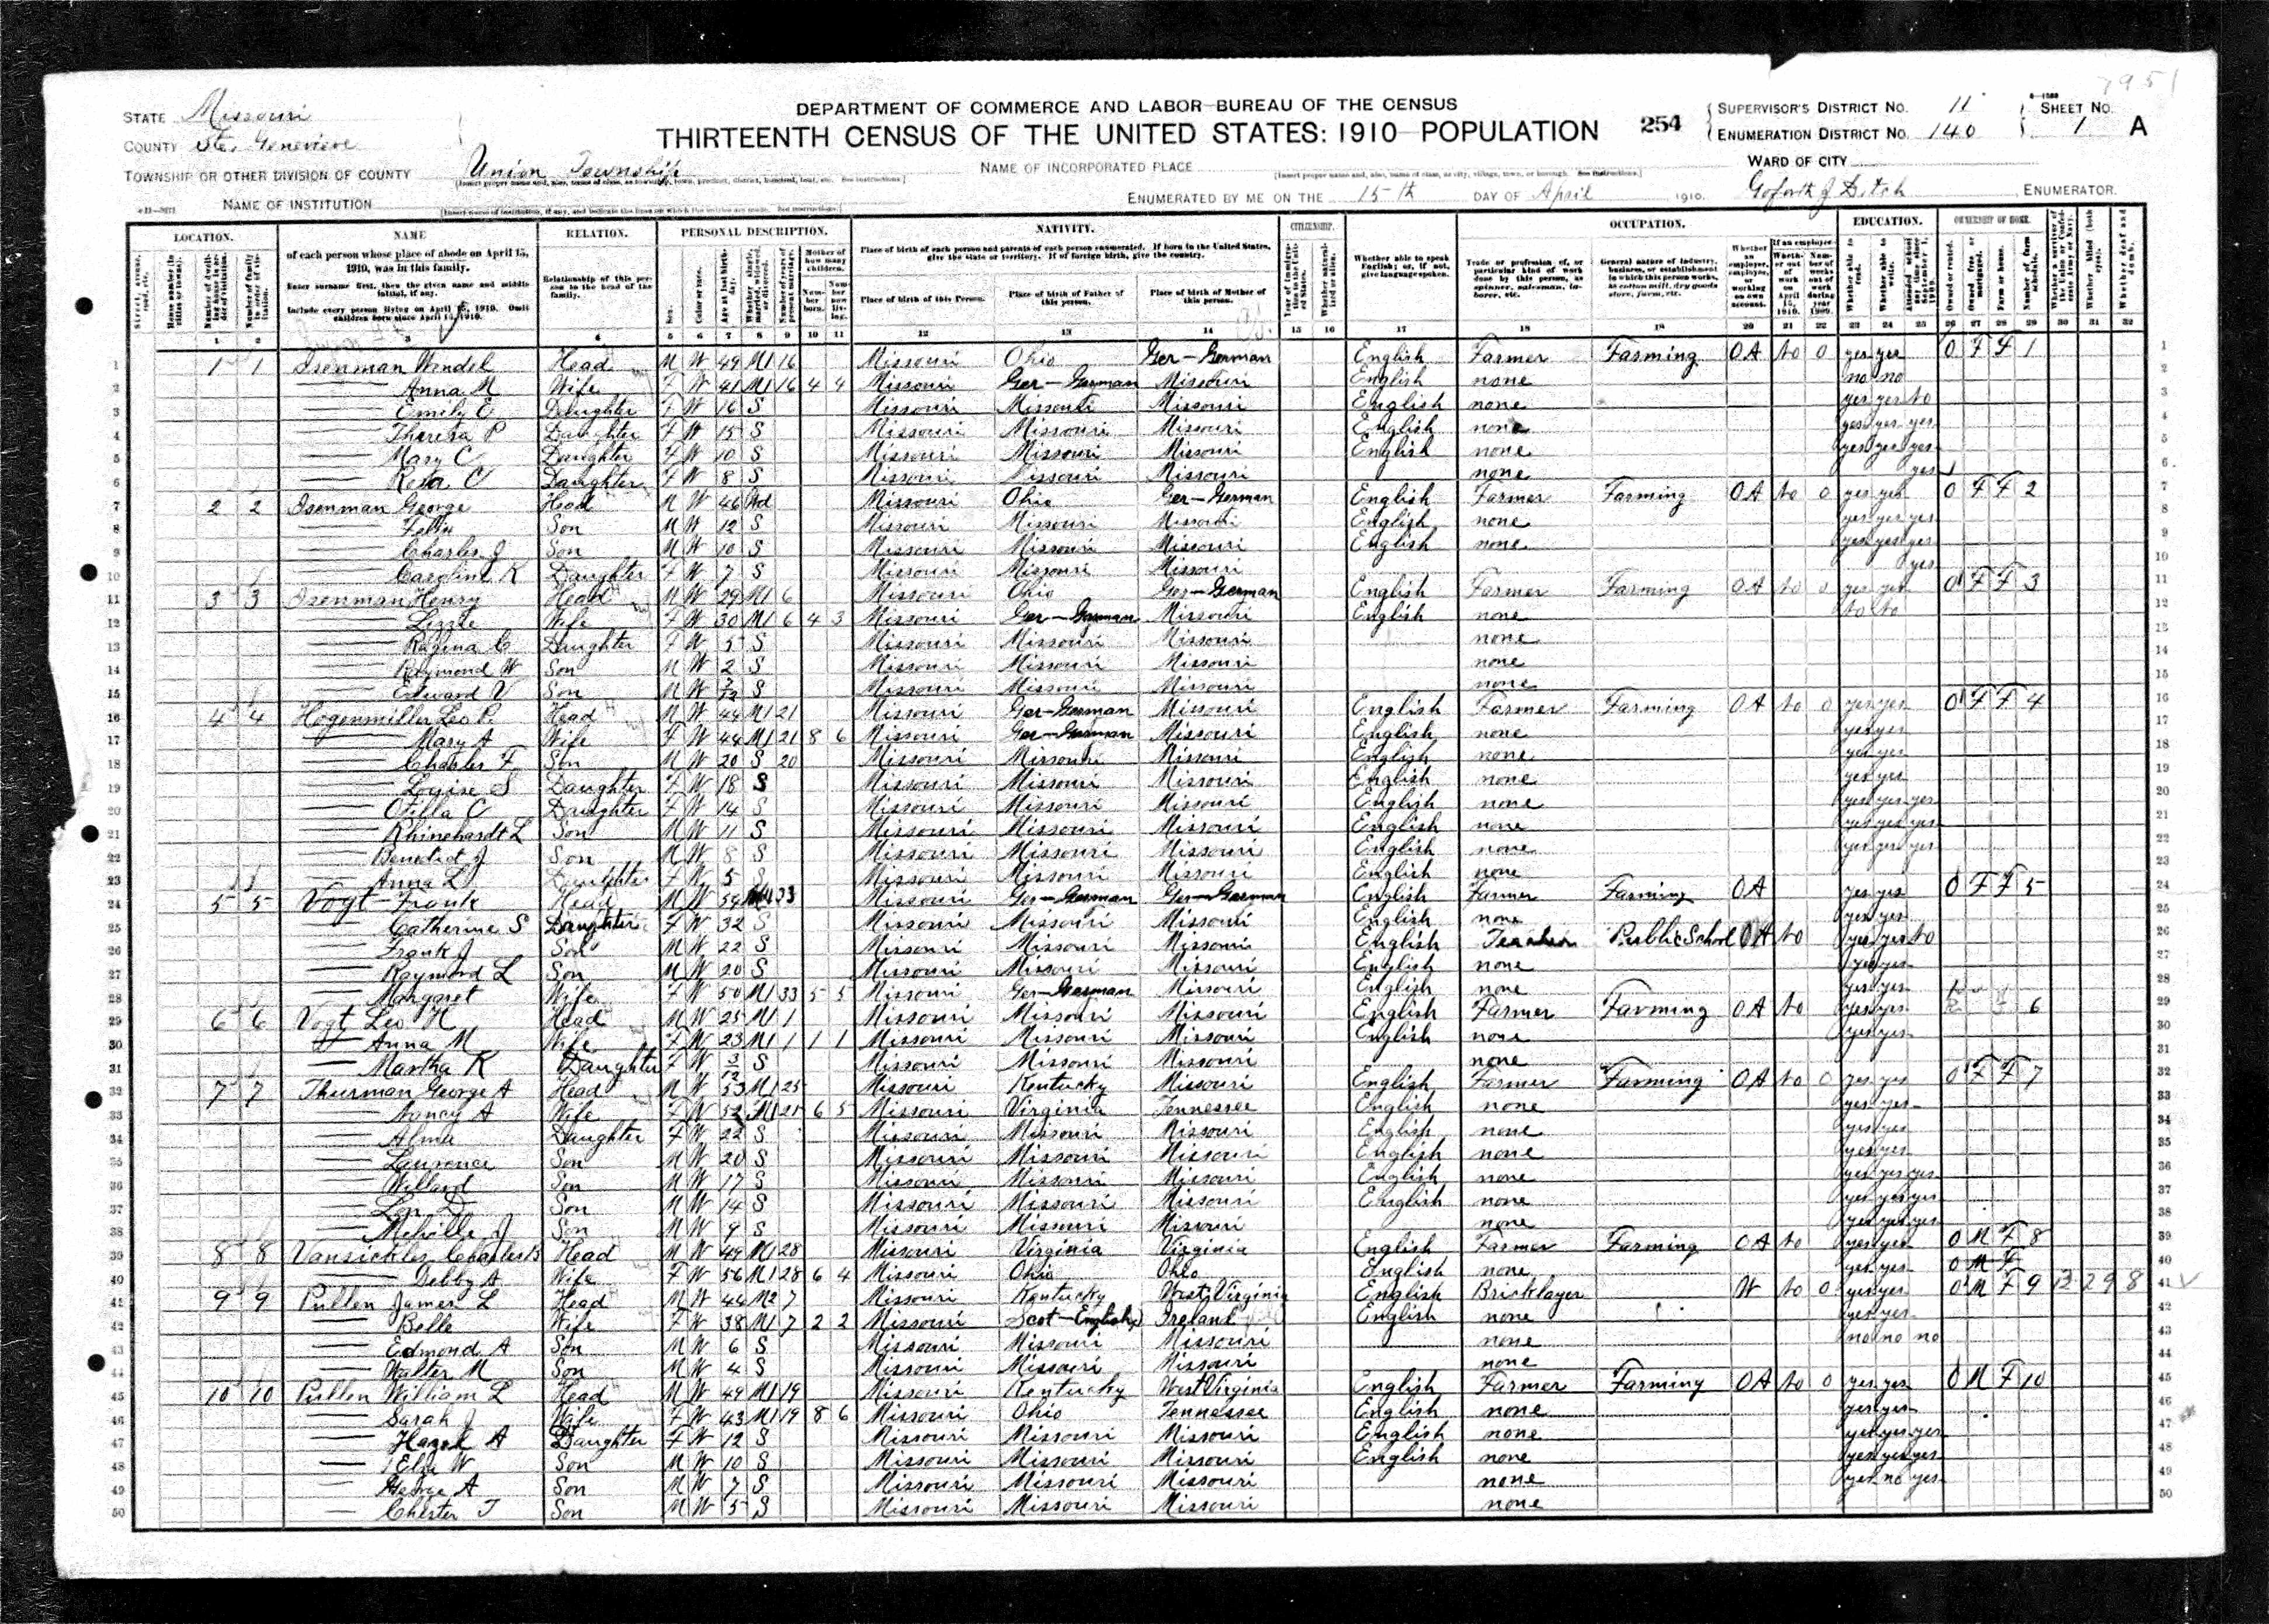 7951
STATE Missouri
COUNTY Ste. Genevieve
TOWNSHIP OR OTHER DIVISION OF COUNTY Union Township
NAME OF INSTITUTION
DEPARTMENT OF COMMERCE AND LABOR—BUREAU OF THE CENSUS
THIRTEENTH CENSUS OF THE UNITED STATES: 1910—POPULATION
254
SUPERVISOR'S DISTRICT NO. 11
ENUMERATION DISTRICT NO. 140
SHEET NO. 1 A
NAME OF INCORPORATED PLACE
WARD OF CITY
ENUMERATED BY ME ON THE 15th DAY OF April 1910. Goforth J Ditch ENUMERATOR.
LOCATION. NAME RELATION. PERSONAL DESCRIPTION. NATIVITY. CITIZENSHIP. OCCUPATION. EDUCATION. OWNERSHIP OF HOME.
of each person whose place of abode on April 15, 1910, was in this family.
Enter surname first, then the given name and middle initial, if any.
Include every person living on April 15, 1910. Omit children born since April 15, 1910.
Relationship of this person to the head of the family.
Place of birth of each person and parents of each person enumerated. If born in the United States, give the state or territory. If of foreign birth, give the country.
Place of birth of this Person. Place of birth of Father of this person. Place of birth of Mother of this person.
Whether able to speak English; or, if not, give language spoken.
Trade or profession of, or particular kind of work done by this person, as spinner, salesman, laborer, etc.
General nature of industry, business, or establishment in which this person works, as cotton mill, dry goods store, farm, etc.
1 2 3 4 5 6 7 8 9 10 11 12 13 14 15 16 17 18 19 20 21 22 23 24 25 26 27 28 29 30 31 32
1 1 1 Isenman Wendel Head M W 49 M1 16 Missouri Ohio Ger-German English Farmer Farming OA No 0 yes yes O F F 1
2 Anna M Wife F W 41 M1 16 4 4 Missouri Ger-German Missouri English none no no
3 Emily E Daughter F W 16 S Missouri Missouri Missouri English none yes yes No
4 Theresa P Daughter F W 15 S Missouri Missouri Missouri English none yes yes yes
5 Mary C Daughter F W 10 S Missouri Missouri Missouri English none yes yes yes
6 Rosa C Daughter F W 8 S Missouri Missouri Missouri none yes
7 2 2 Isenman George Head M W 46 Wd Missouri Ohio Ger-German English Farmer Farming OA No 0 yes yes O F F 2
8 Felix Son M W 12 S Missouri Missouri Missouri English none yes yes yes
9 Charles J Son M W 10 S Missouri Missouri Missouri English none yes yes yes
10 Caroline K Daughter F W 7 S Missouri Missouri Missouri yes
11 3 3 Isenman Henry Head M W 29 M1 6 Missouri Ohio Ger-German English Farmer Farming OA No 0 yes yes O F F 3
12 Lizzie Wife F W 30 M1 6 4 3 Missouri Ger-German Missouri English none No No
13 Ragina C Daughter F W 5 S Missouri Missouri Missouri none
14 Raymond W Son M W 2 S Missouri Missouri Missouri none
15 Edward V Son M W S Missouri Missouri Missouri none
16 4 4 Hogenmiller Leo P. Head M W 44 M1 21 Missouri Ger-German Missouri English Farmer Farming OA No 0 yes yes O F F 4
17 Mary A Wife F W 44 M1 21 8 6 Missouri Ger-German Missouri English none yes yes
18 Charles F Son M W 20 S 20 Missouri Missouri Missouri English none yes yes
19 Louise S Daughter F W 18 S Missouri Missouri Missouri English none yes yes
20 Otilla C Daughter F W 14 S Missouri Missouri Missouri English none yes yes yes
21 Rhinehardt L Son M W 11 S Missouri Missouri Missouri English none yes yes yes
22 Benedict J Son M W 8 S Missouri Missouri Missouri English none yes yes yes
23 Anna L Daughter F W 5 S Missouri Missouri Missouri English none
24 5 5 Vogt Frank Head M W 54 M1 33 Missouri Ger-German Ger-German English Farmer Farming OA yes yes O F F 5
25 Catherine S Daughter F W 32 S Missouri Missouri Missouri English none yes yes
26 Frank J Son M W 22 S Missouri Missouri Missouri English Teacher Public School OA No yes yes No
27 Raymond L Son M W 20 S Missouri Missouri Missouri English none yes yes
28 Margaret Wife F W 50 M1 33 5 5 Missouri Ger-German Missouri English none yes yes
29 6 6 Vogt Leo H Head M W 25 M1 1 Missouri Missouri Missouri English Farmer Farming OA No yes yes 6
30 Anna M Wife F W 23 M1 1 1 1 Missouri Missouri Missouri English none yes yes
31 Martha K Daughter F W 3/12 S Missouri Missouri Missouri none
32 7 7 Thurman George A Head M W 53 M1 25 Missouri Kentucky Missouri English Farmer Farming OA No 0 yes yes O F F 7
33 Nancy A Wife F W 52 M1 25 6 5 Missouri Virginia Tennessee English none yes yes
34 Alma Daughter F W 22 S Missouri Missouri Missouri English none yes yes
35 Laurence Son M W 20 S Missouri Missouri Missouri English none yes yes
36 Willard Son M W 17 S Missouri Missouri Missouri English none yes yes yes
37 Lon D Son M W 14 S Missouri Missouri Missouri English none yes yes yes
38 Melville J Son M W 9 S Missouri Missouri Missouri none yes yes yes
39 8 8 Vansickles Charles B Head M W 49 M1 28 Missouri Virginia Virginia English Farmer Farming OA No yes yes O M F 8
40 Debby A Wife F W 56 M1 28 6 4 Missouri Ohio Ohio English none yes yes O M F
41 9 9 Pullen James L Head M W 44 M2 7 Missouri Kentucky West Virginia English Bricklayer W No 0 yes yes O M F 9 13 2 9 8
42 Belle Wife F W 38 M1 7 2 2 Missouri Scot-English Ireland English none yes yes
43 Edmond A Son M W 6 S Missouri Missouri Missouri none no no no
44 Walter M Son M W 4 S Missouri Missouri Missouri none
45 10 10 Pullen William L Head M W 49 M1 19 Missouri Kentucky West Virginia English Farmer Farming OA No 0 yes yes O M F 10
46 Sarah J Wife F W 43 M1 19 8 6 Missouri Ohio Tennessee English none yes yes
47 Hazel A Daughter F W 12 S Missouri Missouri Missouri English none yes yes yes
48 Elza W Son M W 10 S Missouri Missouri Missouri English none yes yes yes
49 George A Son M W 7 S Missouri Missouri Missouri none yes no yes
50 Chester T Son M W 5 S Missouri Missouri Missouri none